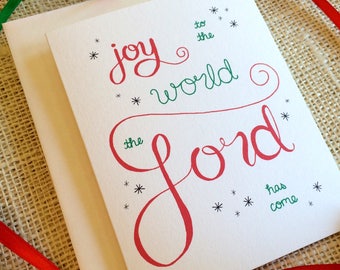 joy to the
world
the Lord
has come